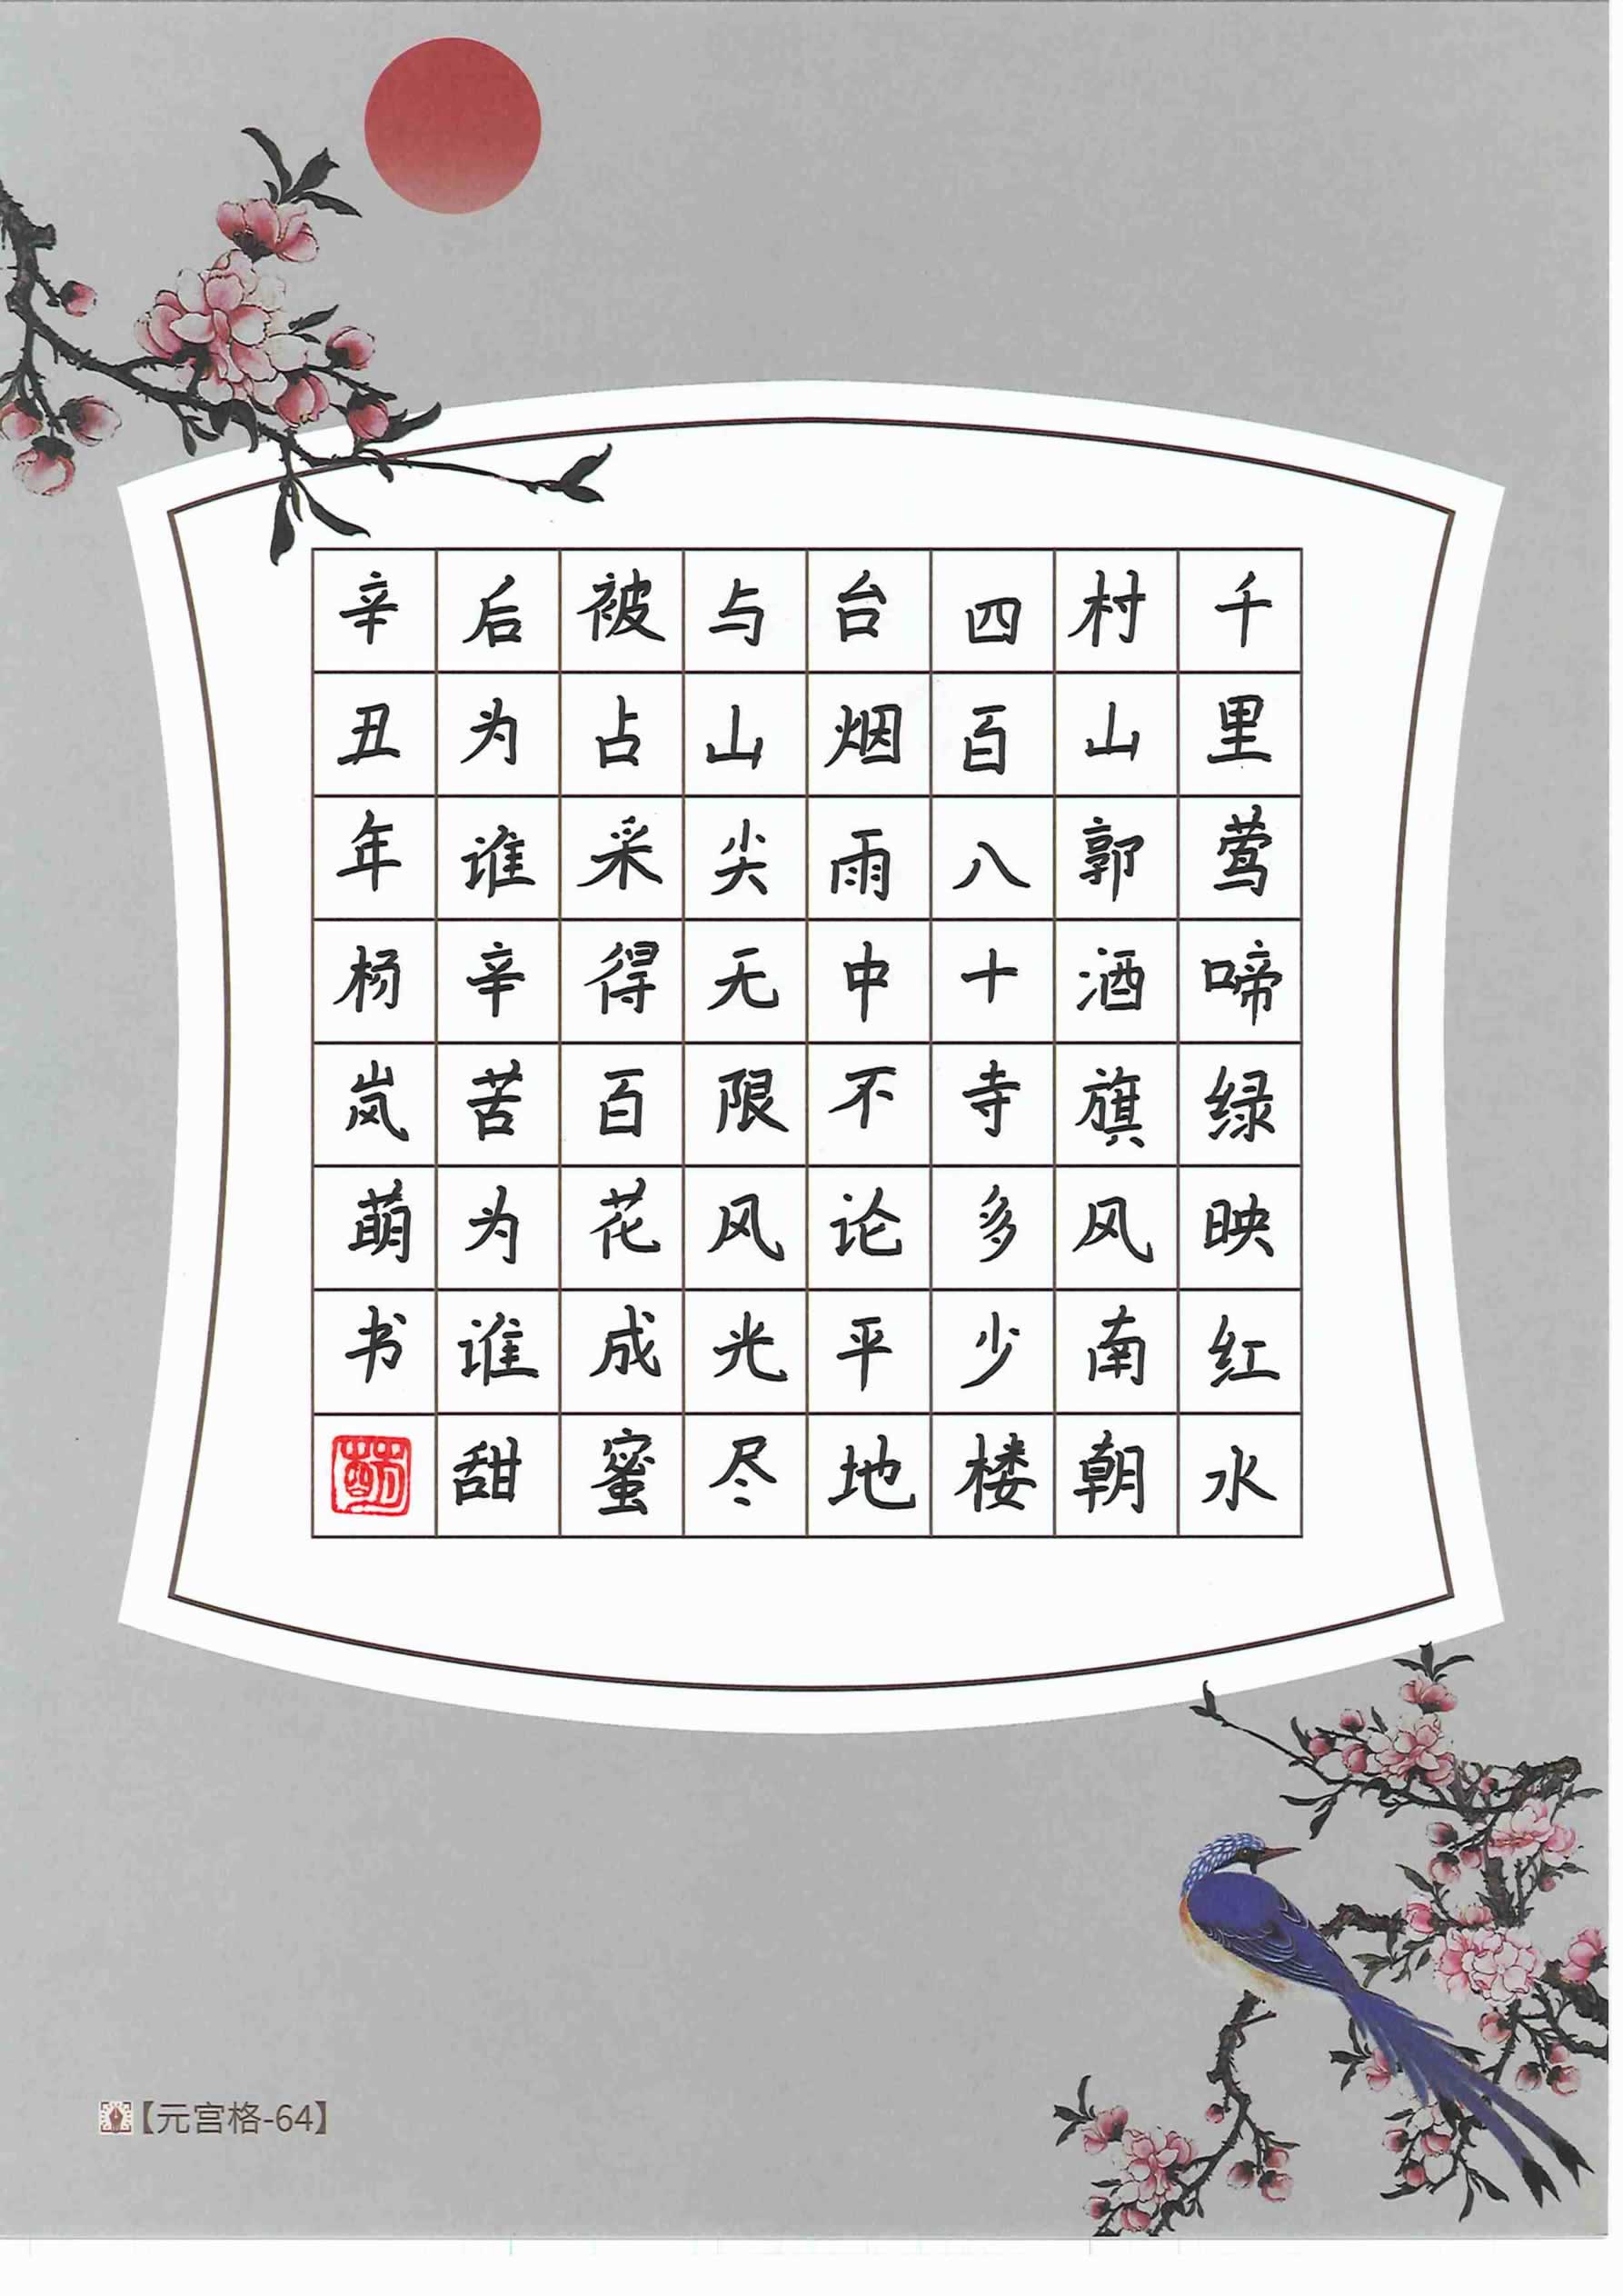 千里莺啼绿映红水
村山郭酒旗风南朝
四百八十寺多少楼
台烟雨中不论平地
与山尖无限风光尽
被占采得百花成蜜
后为谁辛苦为谁甜
辛丑年杨岚萌书
【元宫格-64】